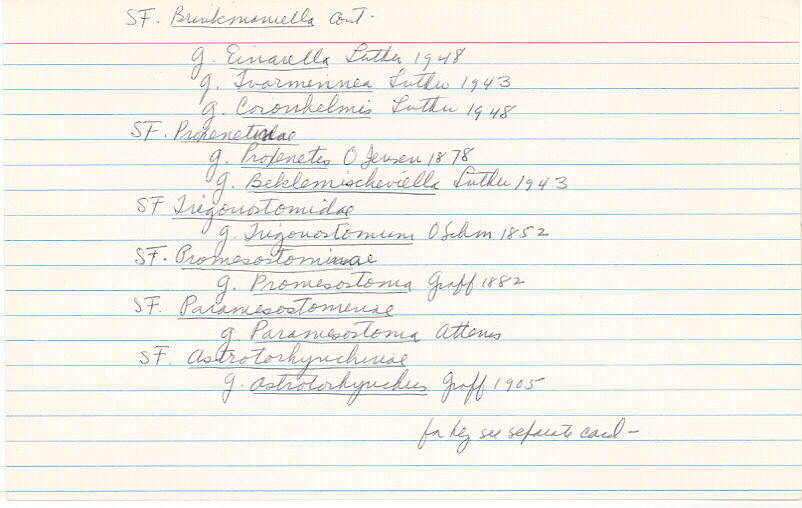 SF. Brinkmaniella cont.
g. Einarella Luther 1948
g. Tvarminnea Luther 1943
g. Coronhelmis Luther 1948
SF. Proxenetinae
g. Proxenetes O Jensen 1878
g. Beklemischeviella Luther 1943
SF Trigonostomidae
g. Trigonostomum OSchm 1852
SF. Promesostominae
g. Promesostoma Graff 1882
SF. Paramesostominae
g. Paramesostoma Attems
SF. Astrotorhynchinae
g. Astrotorhynchus Graff 1905
for key see separate card -